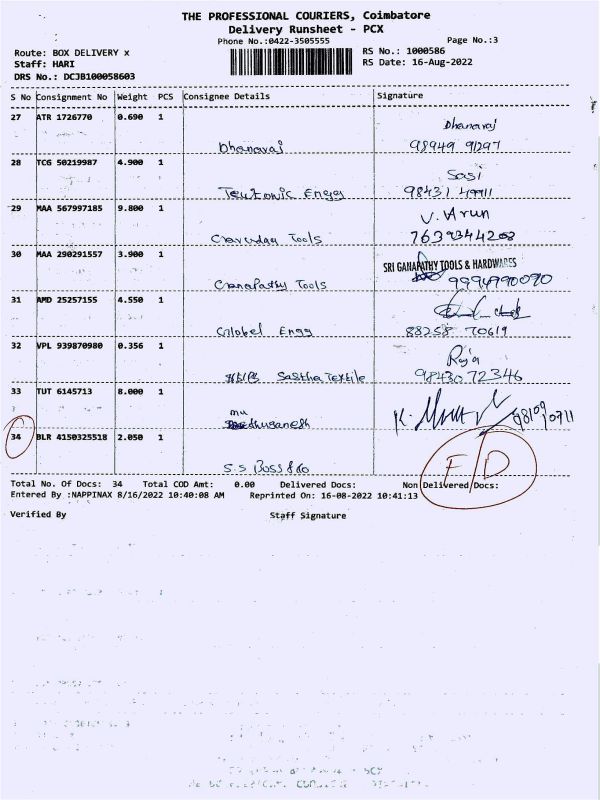 THE PROFESSIONAL COURIERS, Coimbatore
Delivery Runsheet - PCX
Phone No.:0422-3505555 Page No.:3
Route: BOX DELIVERY x RS No.: 1000586
Staff: HARI RS Date: 16-Aug-2022
DRS No.: DCJB100058603
S No Consignment No Weight PCS Consignee Details Signature
27 ATR 1726770 0.690 1 Dhanavaj
Dhanavaj 98949 91297
28 TCG 50219987 4.900 1 Sasi
Teutonic Engg 98431 49911
29 MAA 567997185 9.800 1 V. Arun
Tools 7639344203
30 MAA 290291557 3.900 1 SRI GANAPATHY TOOLS & HARDWARES
Ganapathy Tools 9994790090
31 AMD 25257155 4.550 1
Globel Engg 88258 70619
32 VPL 939870980 0.356 1 Raja
Sastha Textile 98430 72346
33 TUT 6145713 8.000 1
34 BLR 4150325518 2.050 1 F/D
S.S Boss & Co
Total No. Of Docs: 34 Total COD Amt: 0.00 Delivered Docs: Non Delivered Docs:
Entered By :NAPPINAX 8/16/2022 10:40:08 AM Reprinted On: 16-08-2022 10:41:13
Verified By Staff Signature